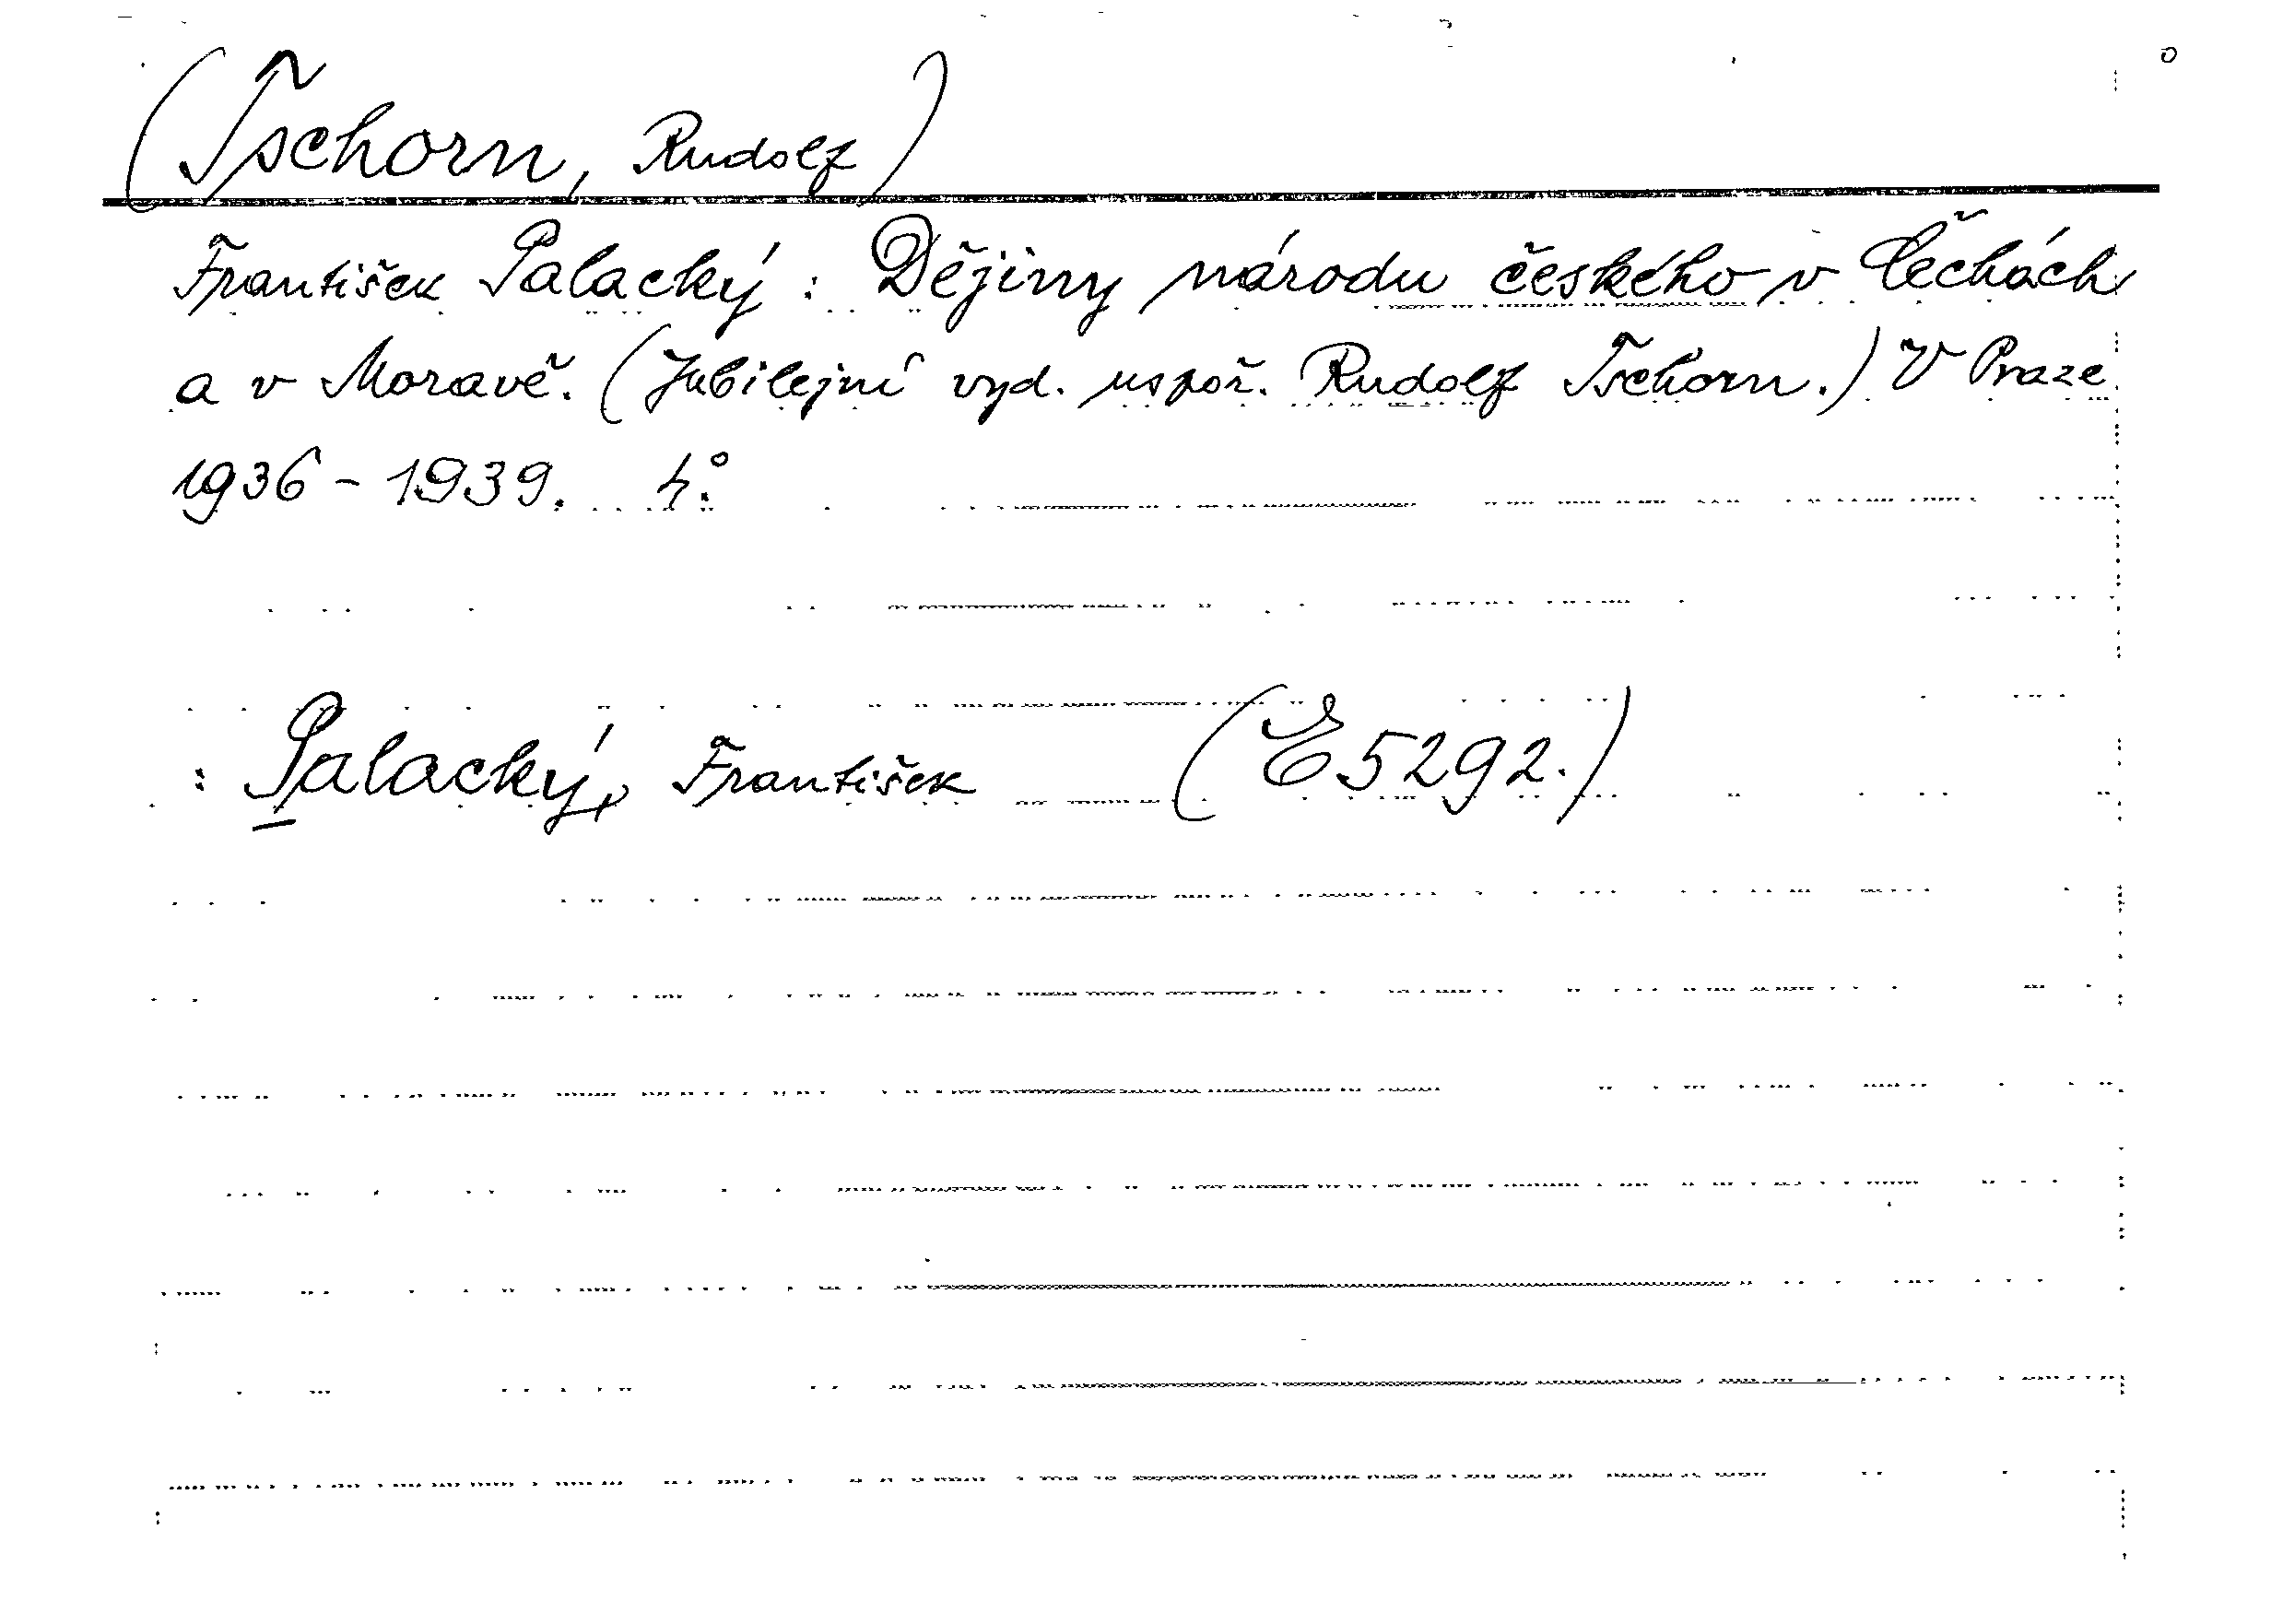 (Tschorn, Rudolf)
František Palacký: Dějiny národu českého v Čechách
a v Moravě. (Jubilejní vyd. uspoř. Rudolf Tschorn.) V Praze
1936-1939. 4°.
: Palacký, František (E 5292.)